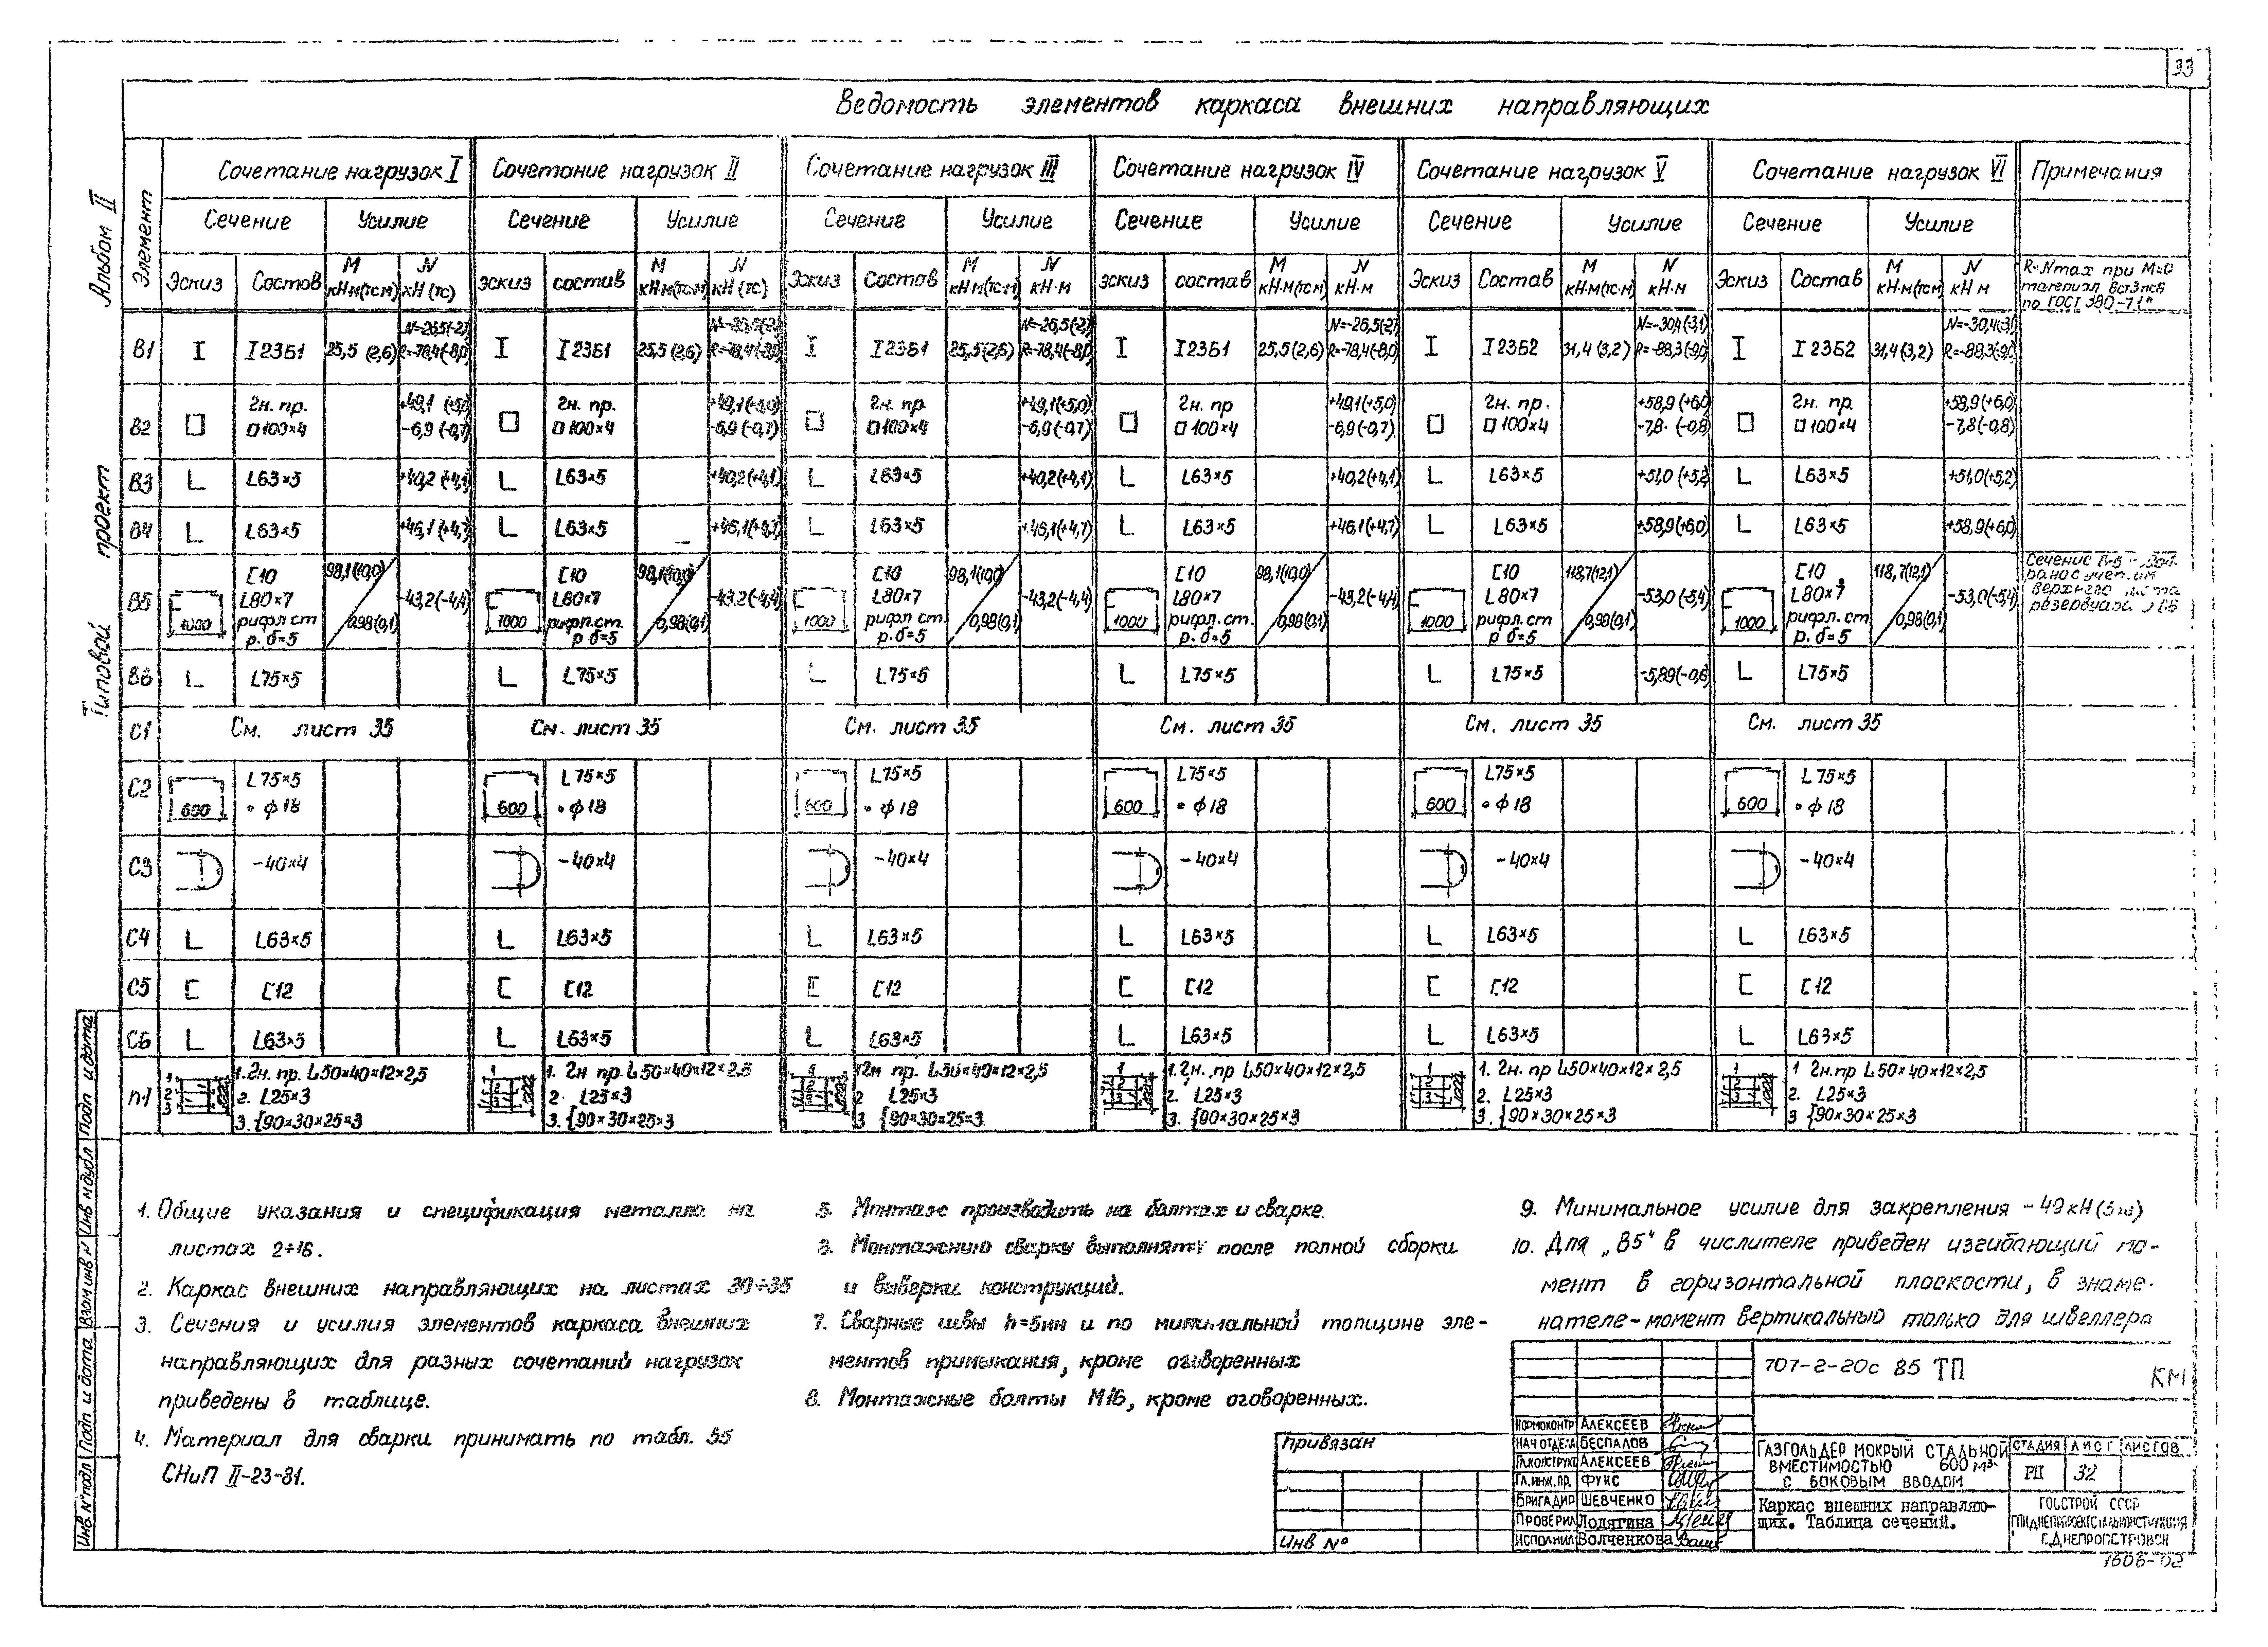 33
Ведомость элементов каркаса внешних направляющих
Альбом II
Типовой проект
Элемент
Сочетание нагрузок I
Сочетание нагрузок II
Сочетание нагрузок III
Сочетание нагрузок IV
Сочетание нагрузок V
Сочетание нагрузок VI
Примечания
Сечение Усилие Сечение Усилие Сечение Усилие Сечение Усилие Сечение Усилие Сечение Усилие
Эскиз Состав М кН·м(тс·м) N кН (тс) Эскиз состав М кН·м(тс·м) N кН (тс) Эскиз Состав М кН·м(тс·м) N кН·м Эскиз состав М кН·м(тс·м) N кН·м Эскиз Состав М кН·м(тс·м) N кН·м Эскиз Состав М кН·м(тс·м) N кН м
R=Nmax при М=0
материал Вст3пс6
по ГОСТ 380-71*
В1 I I23Б1 25,5 (2,6) N=-26,5(-2,7) R=-78,4(-8,0) I I23Б1 25,5 (2,6) N=-26,5(-2,7) R=-78,4(-8,0) I I23Б1 25,5(2,6) N=-26,5(-2,7) R=-78,4(-8,0) I I23Б1 25,5(2,6) N=-26,5(-2,7) R=-78,4(-8,0) I I23Б2 31,4 (3,2) N=-30,4(-3,1) R=-88,3(-9,0) I I23Б2 31,4(3,2) N=-30,4(-3,1) R=-88,3(-9,0)
В2 Гн. пр. □100×4 +49,1 (+5,0) -6,9 (-0,7) Гн. пр. □100×4 +49,1(+5,0) -6,9 (-0,7) Гн. пр □100×4 +49,1(+5,0) -6,9(-0,7) Гн. пр □100×4 +49,1(+5,0) -6,9(-0,7) Гн. пр. □100×4 +58,9(+6,0) -7,8 (-0,8) Гн. пр. □100×4 +58,9(+6,0) -7,8(-0,8)
В3 L L63×5 +40,2 (+4,1) L L63×5 +40,2(+4,1) L L63×5 +40,2(+4,1) L L63×5 +40,2(+4,1) L L63×5 +51,0 (+5,2) L L63×5 +51,0(+5,2)
В4 L L63×5 +46,1 (+4,7) L L63×5 +46,1(+4,7) L L63×5 +46,1(+4,7) L L63×5 +46,1(+4,7) L L63×5 +58,9(+6,0) L L63×5 +58,9(+6,0)
В5 1000 [10 L80×7 рифл ст. р. δ=5 98,1(10,0) 0,98(0,1) -43,2(-4,4) 1000 [10 L80×7 рифл.ст. р δ=5 98,1(10,0) 0,98(0,1) -43,2(-4,4) 1000 [10 L80×7 рифл ст. р. δ=5 98,1(10,0) 0,98(0,1) -43,2(-4,4) 1000 [10 L80×7 рифл.ст. р. δ=5 98,1(10,0) 0,98(0,1) -43,2(-4,4) 1000 [10 L80×7 рифл.ст р. δ=5 118,7(12,1) 0,98(0,1) -53,0(-5,4) 1000 [10 L80×7 рифл.ст р. δ=5 118,7(12,1) 0,98(0,1) -53,0(-5,4)
Сечение
верхнего
резервуара
В6 L L75×5 L L75×5 L L75×5 L L75×5 L L75×5 -5,89(-0,6) L L75×5
С1 См. лист 35 См. лист 35 См. лист 35 См. лист 35 См. лист 35 См. лист 35
С2 600 L75×5 • ϕ18 600 L75×5 • ϕ18 600 L75×5 • ϕ18 600 L75×5 • ϕ18 600 L75×5 • ϕ18 600 L75×5 • ϕ18
С3 -40×4 -40×4 -40×4 -40×4 -40×4 -40×4
С4 L L63×5 L L63×5 L L63×5 L L63×5 L L63×5 L L63×5
С5 [ [12 [ [12 [ [12 [ [12 [ [12 [ [12
С6 L L63×5 L L63×5 L L63×5 L L63×5 L L63×5 L L63×5
п1 1. Гн. пр. L50×40×12×2,5 1. Гн пр. L50×40×12×2,5 Гн пр. L50×40×12×2,5 1. Гн. пр L50×40×12×2,5 1. Гн. пр L50×40×12×2,5 1 Гн.пр L50×40×12×2,5
2. L25×3 2. L25×3 2 L25×3 2. L25×3 2. L25×3 2. L25×3
3. {90×30×25×3 3. {90×30×25×3 3 {90×30×25×3 3. {90×30×25×3 3. {90×30×25×3 3 {90×30×25×3
1. Общие указания и спецификация металла на
листах 2÷16.
2. Каркас внешних направляющих на листах 30÷35
3. Сечения и усилия элементов каркаса внешних
направляющих для разных сочетаний нагрузок
приведены в таблице.
4. Материал для сварки принимать по табл. 55
СНиП II-23-81.
5. Монтаж производить на болтах и сварке.
6. Монтажную сварку выполнять после полной сборки
и выверки конструкций.
7. Сварные швы h=5мм и по минимальной толщине эле-
ментов примыкания, кроме оговоренных
8. Монтажные болты М16, кроме оговоренных.
9. Минимальное усилие для закрепления -49кН(5тс)
10. Для „В5" в числителе приведен изгибающий мо-
мент в горизонтальной плоскости, в знаме-
нателе-момент вертикальный только для швеллера
707-2-20с 85 ТП
КМ
НОРМОКОНТР АЛЕКСЕЕВ
НАЧ ОТДЕЛА БЕСПАЛОВ
ГЛ.КОНСТРУКТ АЛЕКСЕЕВ
ГЛ.ИНЖ.ПР. ФУКС
БРИГАДИР ШЕВЧЕНКО
ПРОВЕРИЛ Лодягина
ИСПОЛНИЛ Волченкова
ГАЗГОЛЬДЕР МОКРЫЙ СТАЛЬНОЙ
ВМЕСТИМОСТЬЮ 600 м³
С БОКОВЫМ ВВОДОМ
СТАДИЯ ЛИСТ ЛИСТОВ
РП 32
Каркас внешних направляю-
щих. Таблица сечений.
ГОССТРОЙ СССР
ГПИ ДНЕПРПРОЕКТСТАЛЬКОНСТРУКЦИЯ
Г.ДНЕПРОПЕТРОВСК
Привязан
Инв №
7606-02
Инв № подл Подп и дата Взам инв № Инв № дубл Подп и дата